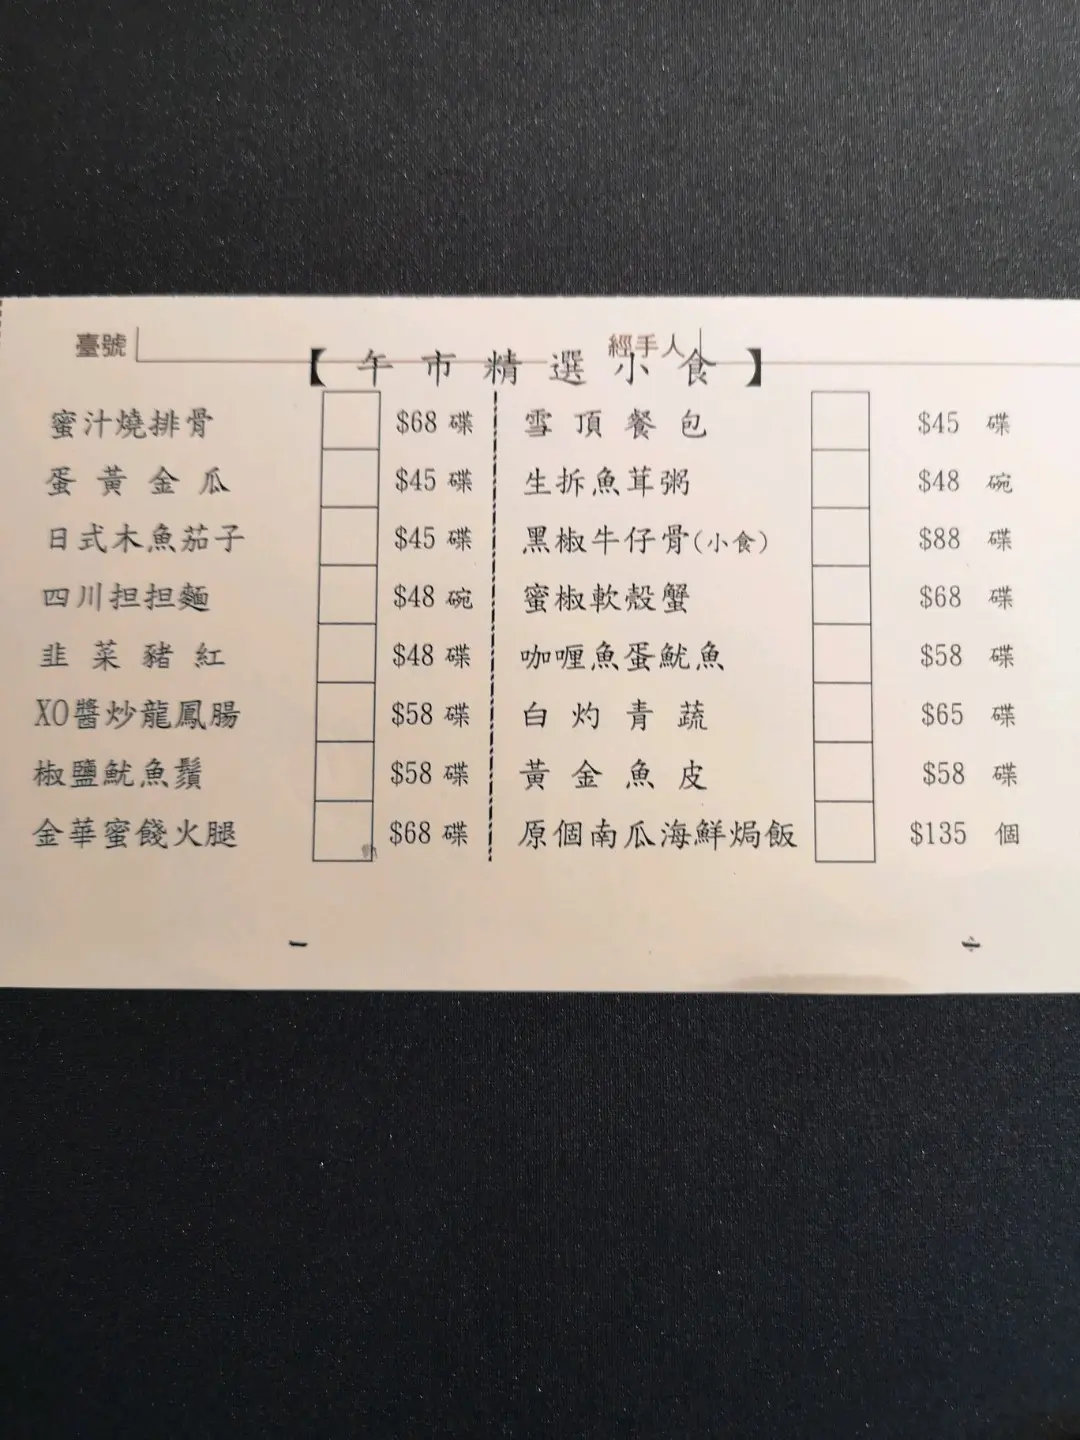 臺號 經手人
【午市精選小食】
蜜汁燒排骨 $68 碟 雪頂餐包 $45 碟
蛋黃金瓜 $45 碟 生拆魚茸粥 $48 碗
日式木魚茄子 $45 碟 黑椒牛仔骨(小食) $88 碟
四川担担麵 $48 碗 蜜椒軟殼蟹 $68 碟
韭菜豬紅 $48 碟 咖喱魚蛋魷魚 $58 碟
XO醬炒龍鳳腸 $58 碟 白灼青蔬 $65 碟
椒鹽魷魚鬚 $58 碟 黃金魚皮 $58 碟
金華蜜餞火腿 $68 碟 原個南瓜海鮮焗飯 $135 個